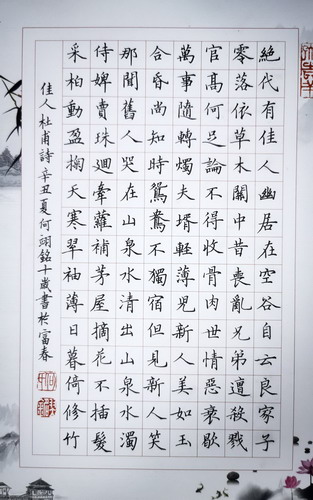 絕代有佳人幽居在空谷自云良家子
零落依草木關中昔喪亂兄弟遭殺戮
官高何足論不得收骨肉世情惡衰歇
萬事隨轉燭夫壻輕薄兒新人美如玉
合昏尚知時鴛鴦不獨宿但見新人笑
那聞舊人哭在山泉水清出山泉水濁
侍婢賣珠迴牽蘿補茅屋摘花不插髮
采柏動盈掬天寒翠袖薄日暮倚修竹
佳人杜甫詩辛丑夏何翊銘十歲書於富春